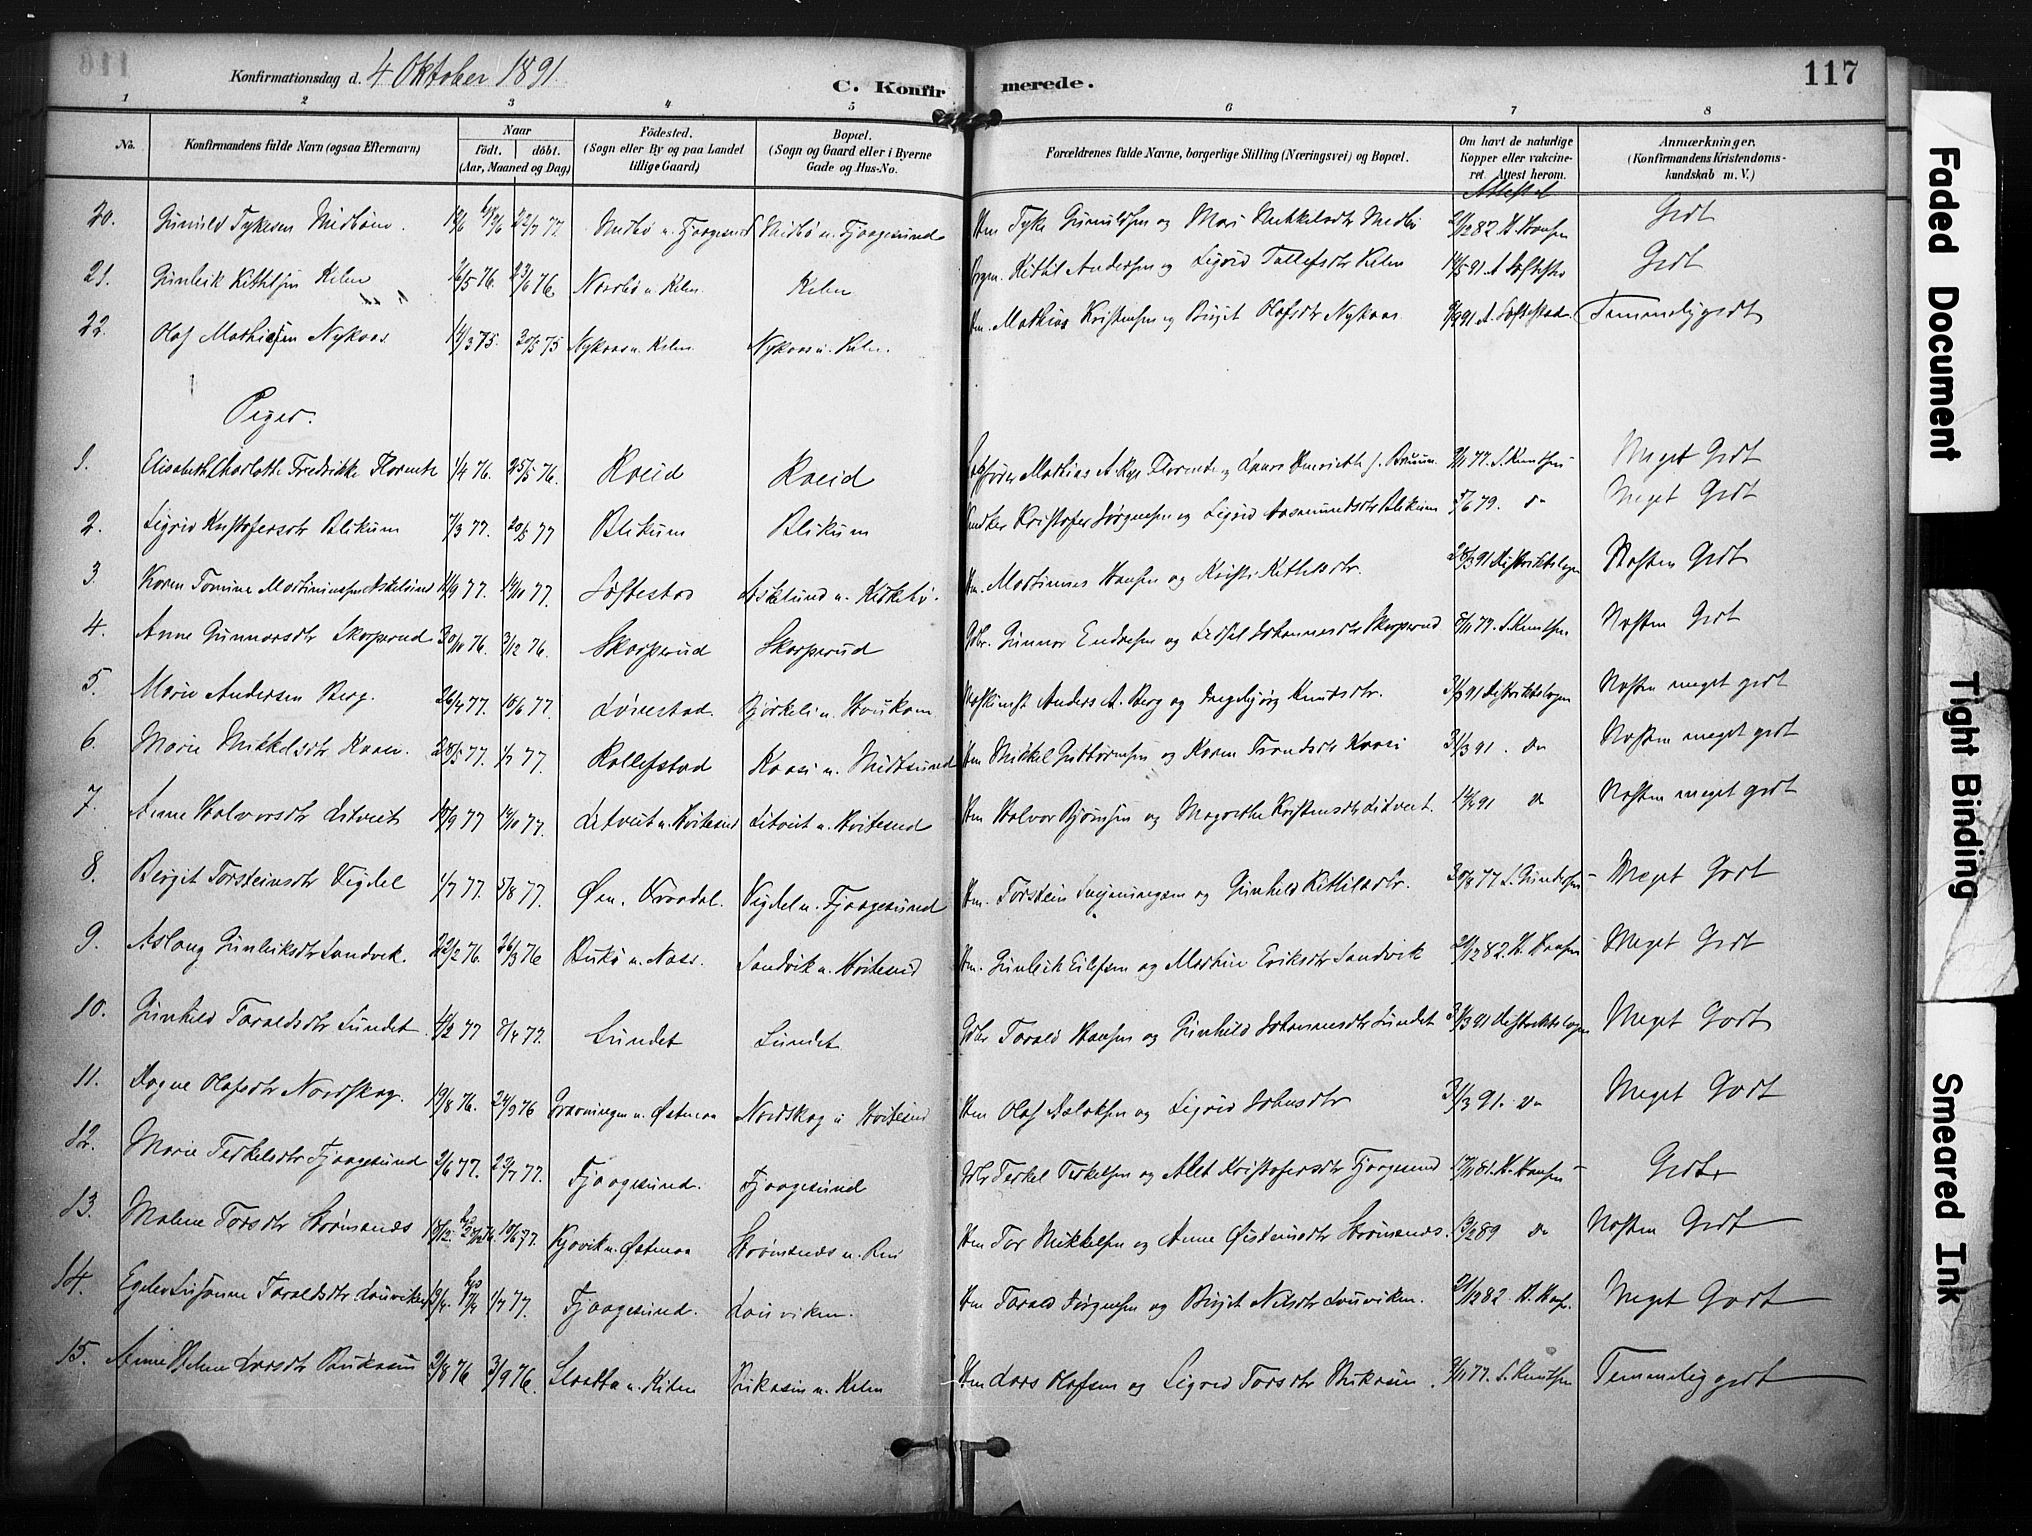 116
Konfirmationsdag d. 4 Oktober 1891.
C. Konfirmerede.
117
1 2 3 4 5 6 7 8
No. Konfirmandens fulde Navn (ogsaa Efternavn) Naar födt. döbt. (Aar, Maaned og Dag) Födested. (Sogn eller By og paa Landet tillige Gaard) Bopæl. (Sogn og Gaard eller i Byerne Gade og Hus-No. Forældrenes fulde Navne, borgerlige Stilling (Næringsvei) og Bopæl. Om havt de naturlige Kopper eller vakcineret. Attest herom. Anmærkninger. (Konfirmandens Kristendomskundskab m. V.)
Attestat
20. Gunuld Tykesen Midböen. Midbö u. Fjaagesund Midbö u. Fjaagesund Hm Tyke Gunuldsen og Mari Mikkelsdtr Midbö 21/12 82 H. Hansen Godt
21. Gunleik Kittilsen Kilen 16/5 76. 23/6 76. Nordbö u. Kilen. Kilen Kittil Andersen og Sigrid Tallefsdtr Kilen 14/5 91 A. Loftestad Godt
22. Olaf Mathiesen Nykaas 14/3 75. 20/5 75 Nykaas u. Kilen Nykaas u. Kilen. Hm. Mathias Kristensen og Birgit Olafsdtr Nykaas 91 A. Loftestad Temmelig godt
Piger.
1. Elisabeth Charlotte Fredrikke Florentz 1/4 76. 25/5 76. Kveid Kveid Mathias A. Rye Florentz og Laura Henriette f. Bruun. 9/11 77. S. Knutsen Meget Godt
2. Sigrid Kristofersdtr Blikum 7/3 77. 20/5 77 Blikum Blikum Kristofer Jörgensen og Sigrid Aasmundsdtr Blikum 5/6 79. do Meget Godt
3. Karen Tomine Martiniusen Askelund 11/9 77. 14/10 77. Loftestad Askelund u. Kirkebö. Hm. Martinius Hansen og Kristi Kittelsdtr. 28/3 91 Distriktslægen Næsten Godt
4. Anne Gunnarsdtr Skarperud 30/10 76. 3/12 76. Skarperud Skarperud Gbr. Gunnar Endresen og Sidsel Johannesdtr Skarperud 5/11 77. S. Knutsen Næsten Godt
5. Marie Andersen Berg. 26/4 77. 10/6 77. Lönnestad. Björkeli u. Haukom Anders A. Berg og Ingebjörg Knudsdtr. 31/3 91 Distriktslægen Næsten meget godt
6. Marie Mikkelsdtr Kaasi. 28/5 77. 1/7 77. Rollefstad Kaasi u. Midtsund Hm Mikkel Guttormsen og Karen Trondsdtr Kaasi 31/3 91. do Næsten meget godt
7. Anne Halvorsdtr Litveit 10/9 77 14/10 77. Litveit u. Hvitesund Litveit u. Hvitesund Hm Halvor Björnsen og Magrethe Kristensdtr Litveit. 14/4 91 do Næsten meget godt
8. Birgit Torsteinsdtr Vigdel 1/7 77. 5/8 77. Öen. Vraadal. Vigdel u. Fjaagesund Hm. Torstein og Gunhild Kittilsdtr. 30/8 77 S. Gundersen Meget Godt
9. Aslaug Gunleiksdtr Sandvik. 22/2 76. 26/3 76 Bukö u. Næss. Sandvik u. Hvitesund Hm. Gunleik Eilefsen og Martine Eriksdtr Sandvik 21/12 82. H. Hansen Meget Godt
10. Gunhild Taraldsdtr Lundet. 4/2 77 8/4 77. Lundet Lundet Gbr Tarald Hansen og Gunhild Johannesdtr Lundet 31/3 91 Distriktslægen Meget Godt
11. Dagne Olafsdtr Nordskog. 19/8 76. 24/9 76 Gravningen u. Östmoa Nordskog u Hvitesund Hm Olaf Aslaksen og Sigrid Johnsdtr 31/3 91. do Meget Godt
12. Marie Terkelsdtr Fjaagesund 2/6 77. 22/7 77. Fjaagesund. Fjaagesund Gbr Terkel Terkelsen og Alet Kristofersdtr Fjaagesund 17/11 81. H. Hansen Godt
13. Malene Torsdtr Strömsnæs 10/6 77. Kjövik u. Östmoa Strömsnæs u. Rui Hm Tor Mikkelsen og Anne Öisteinsdtr Strömsnæs. 13/12 89 do Næsten Godt
14. Egelev Susanne Taraldsdtr Lauviken 1/7 77. Fjaagesund. Lauviken. Hm Tarald Jörgensen og Birgit Nilsdtr Lauviken. 21/12 82 H. Hansen Meget Godt
15. Anne Helene Larsdtr Bukasin 2/8 76 3/9 76. Slaatta u. Kilen Bukasin u. Kilen Hm Lars Olafsen og Sigrid Torsdtr Bukasin. 9/11 77. S. Knutsen Temmelig godt
Faded Document
Tight Binding
Smeared Ink